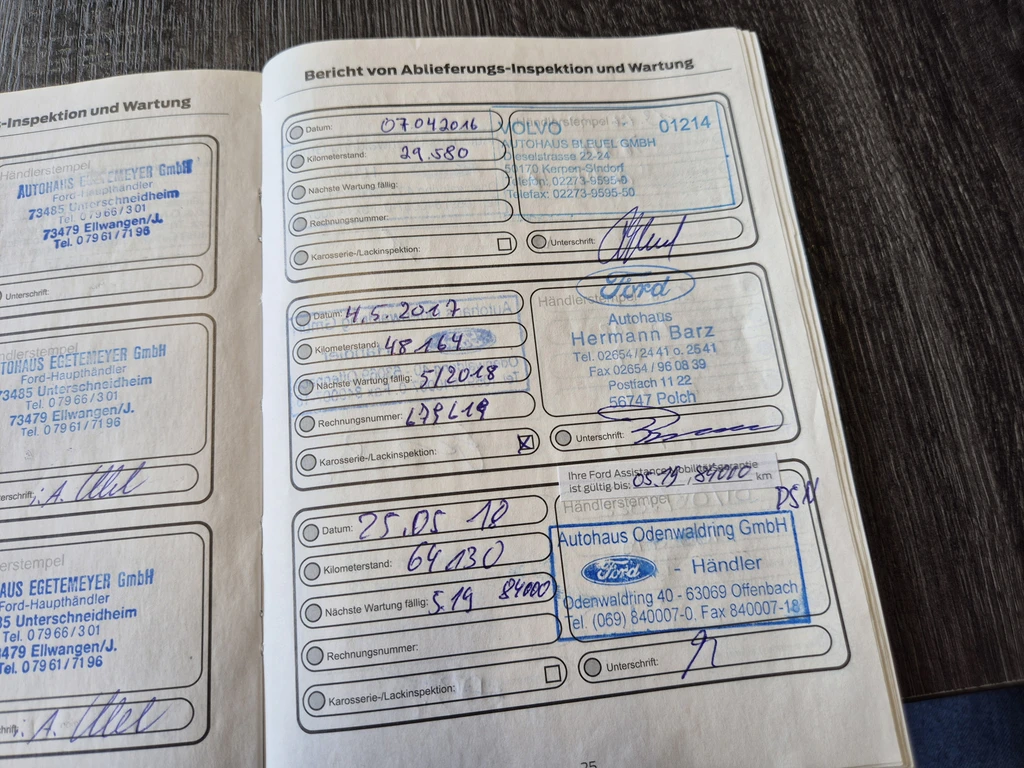 -Inspektion und Wartung
Händlerstempel
AUTOHAUS EGETEMEYER GmbH
Ford-Haupthändler
73485 Unterschneidheim
Tel. 0 79 66 / 3 01
73479 Ellwangen/J.
Tel. 0 79 61 / 71 96
Unterschrift:
Händlerstempel
TOHAUS EGETEMEYER GmbH
Ford-Haupthändler
73485 Unterschneidheim
Tel. 0 79 66 / 3 01
73479 Ellwangen/J.
Tel. 0 79 61 / 71 96
erschrift: i. A.
dlerstempel
AUS EGETEMEYER GmbH
Ford-Haupthändler
85 Unterschneidheim
Tel. 0 79 66 / 3 01
3479 Ellwangen/J.
Tel. 0 79 61 / 71 96
hrift: i. A.
Bericht von Ablieferungs-Inspektion und Wartung
Datum: 07 04 2016
Kilometerstand: 29.580
Nächste Wartung fällig:
Rechnungsnummer:
Karosserie-/Lackinspektion:
Händlerstempel
VOLVO 01214
AUTOHAUS BLEUEL GMBH
Dieselstrasse 22-24
50170 Kerpen-Sindorf
Telefon: 02273-9595-0
Telefax: 02273-9595-50
Unterschrift:
Datum: 4.5.2017
Kilometerstand: 48 164
Nächste Wartung fällig: 5/2018
Rechnungsnummer:
Karosserie-/Lackinspektion:
Händlerstempel
Ford
Autohaus
Hermann Barz
Tel. 02654 / 24 41 o. 25 41
Fax 02654 / 96 08 39
Postfach 11 22
56747 Polch
Unterschrift:
Ihre Ford Assistance Mobilitätsgarantie
ist gültig bis: 05.19, 84000 km
Datum: 25.05 18
Kilometerstand: 64 130
Nächste Wartung fällig: 5.19 84000
Rechnungsnummer:
Karosserie-/Lackinspektion:
Händlerstempel
Autohaus Odenwaldring GmbH
Ford - Händler
Odenwaldring 40 - 63069 Offenbach
Tel. (069) 840007-0. Fax 840007-18
Unterschrift: